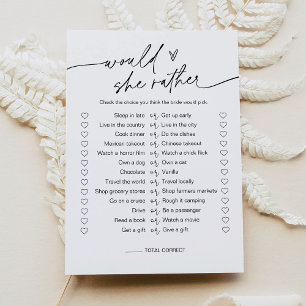 would
she rather
Check the choice you think the bride would pick.
Sleep in late or Get up early
Live in the country or Live in the city
Cook dinner or Do the dishes
Mexican takeout or Chinese takeout
Watch a horror film or Watch a chick flick
Own a dog or Own a cat
Chocolate or Vanilla
Travel the world or Travel locally
Shop grocery stores or Shop farmers markets
Go on a cruise or Rough it camping
Drive or Be a passenger
Read a book or Watch a movie
Get a gift or Give a gift
_____ TOTAL CORRECT